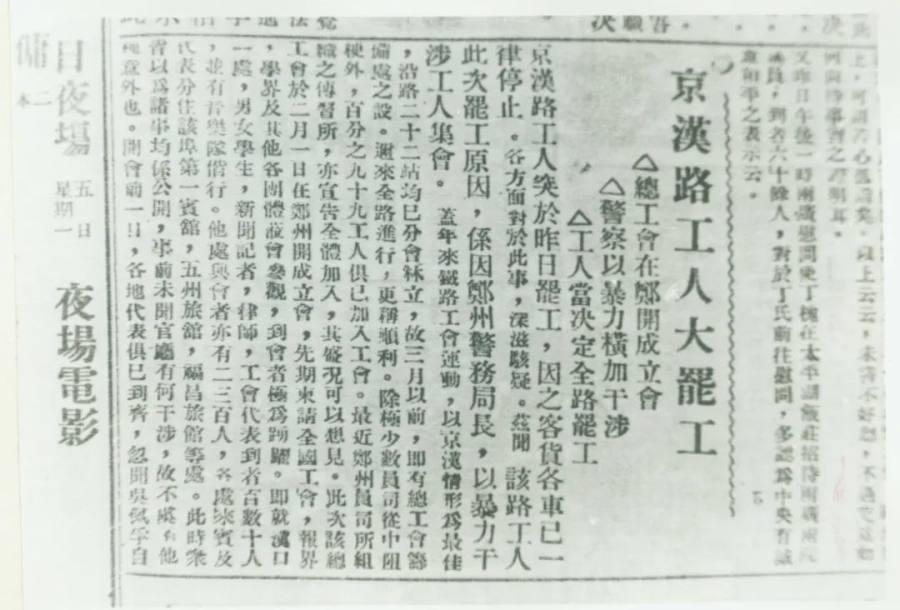 上，可謂苦心孤詣矣。以上云云，未
又昨日午後一時兩議慰問使丁槐在太平湖飯莊招待兩議兩院
議員，到者六十餘人，對於丁氏前往慰問，多認爲中央有誠
意和平之表示云。
京漢路工人大罷工
△總工會在鄭開成立會
△警察以暴力橫加干涉
△工人當决定全路罷工
京漢路工人突於昨日罷工，因之客貨各車已一
律停止。各方面對於此事，深滋駭疑。茲聞 該路工人
此次罷工原因，係因鄭州警務局長，以暴力干
涉工人集會。 蓋年來鐵路工會運動，以京漢情形爲最佳
，沿路二十二站均已分會林立，故三月以前，即有總工會籌
備處之設。邇來全路進行，更稱順利。除極少數員司從中阻
梗外，百分之九十九工人俱已加入工會。最近鄭州員司所組
織之傳習所，亦宣告全體加入，其盛况可以想見。此次該總
工會於二月一日在鄭州開成立會，先期柬請全國工會，報界
，學界及其他各團體蒞會參觀，到會者極爲踴躍。即就漢口
一處，男女學生，新聞記者，律師，工會代表到者百數十人
，並有音樂隊偕行。他處與會者亦有二三百人，各處來賓及
代表分住該埠第一賓館，五州旅館，福昌旅館等處。此時衆
皆以爲諸事均係公開，事前未聞官廳有何干涉，故不虞有他
種意外也。開會前一日，各地代表俱已到齊，忽聞吳佩孚自
日夜塲
二本
五日
星期一
夜塲電影